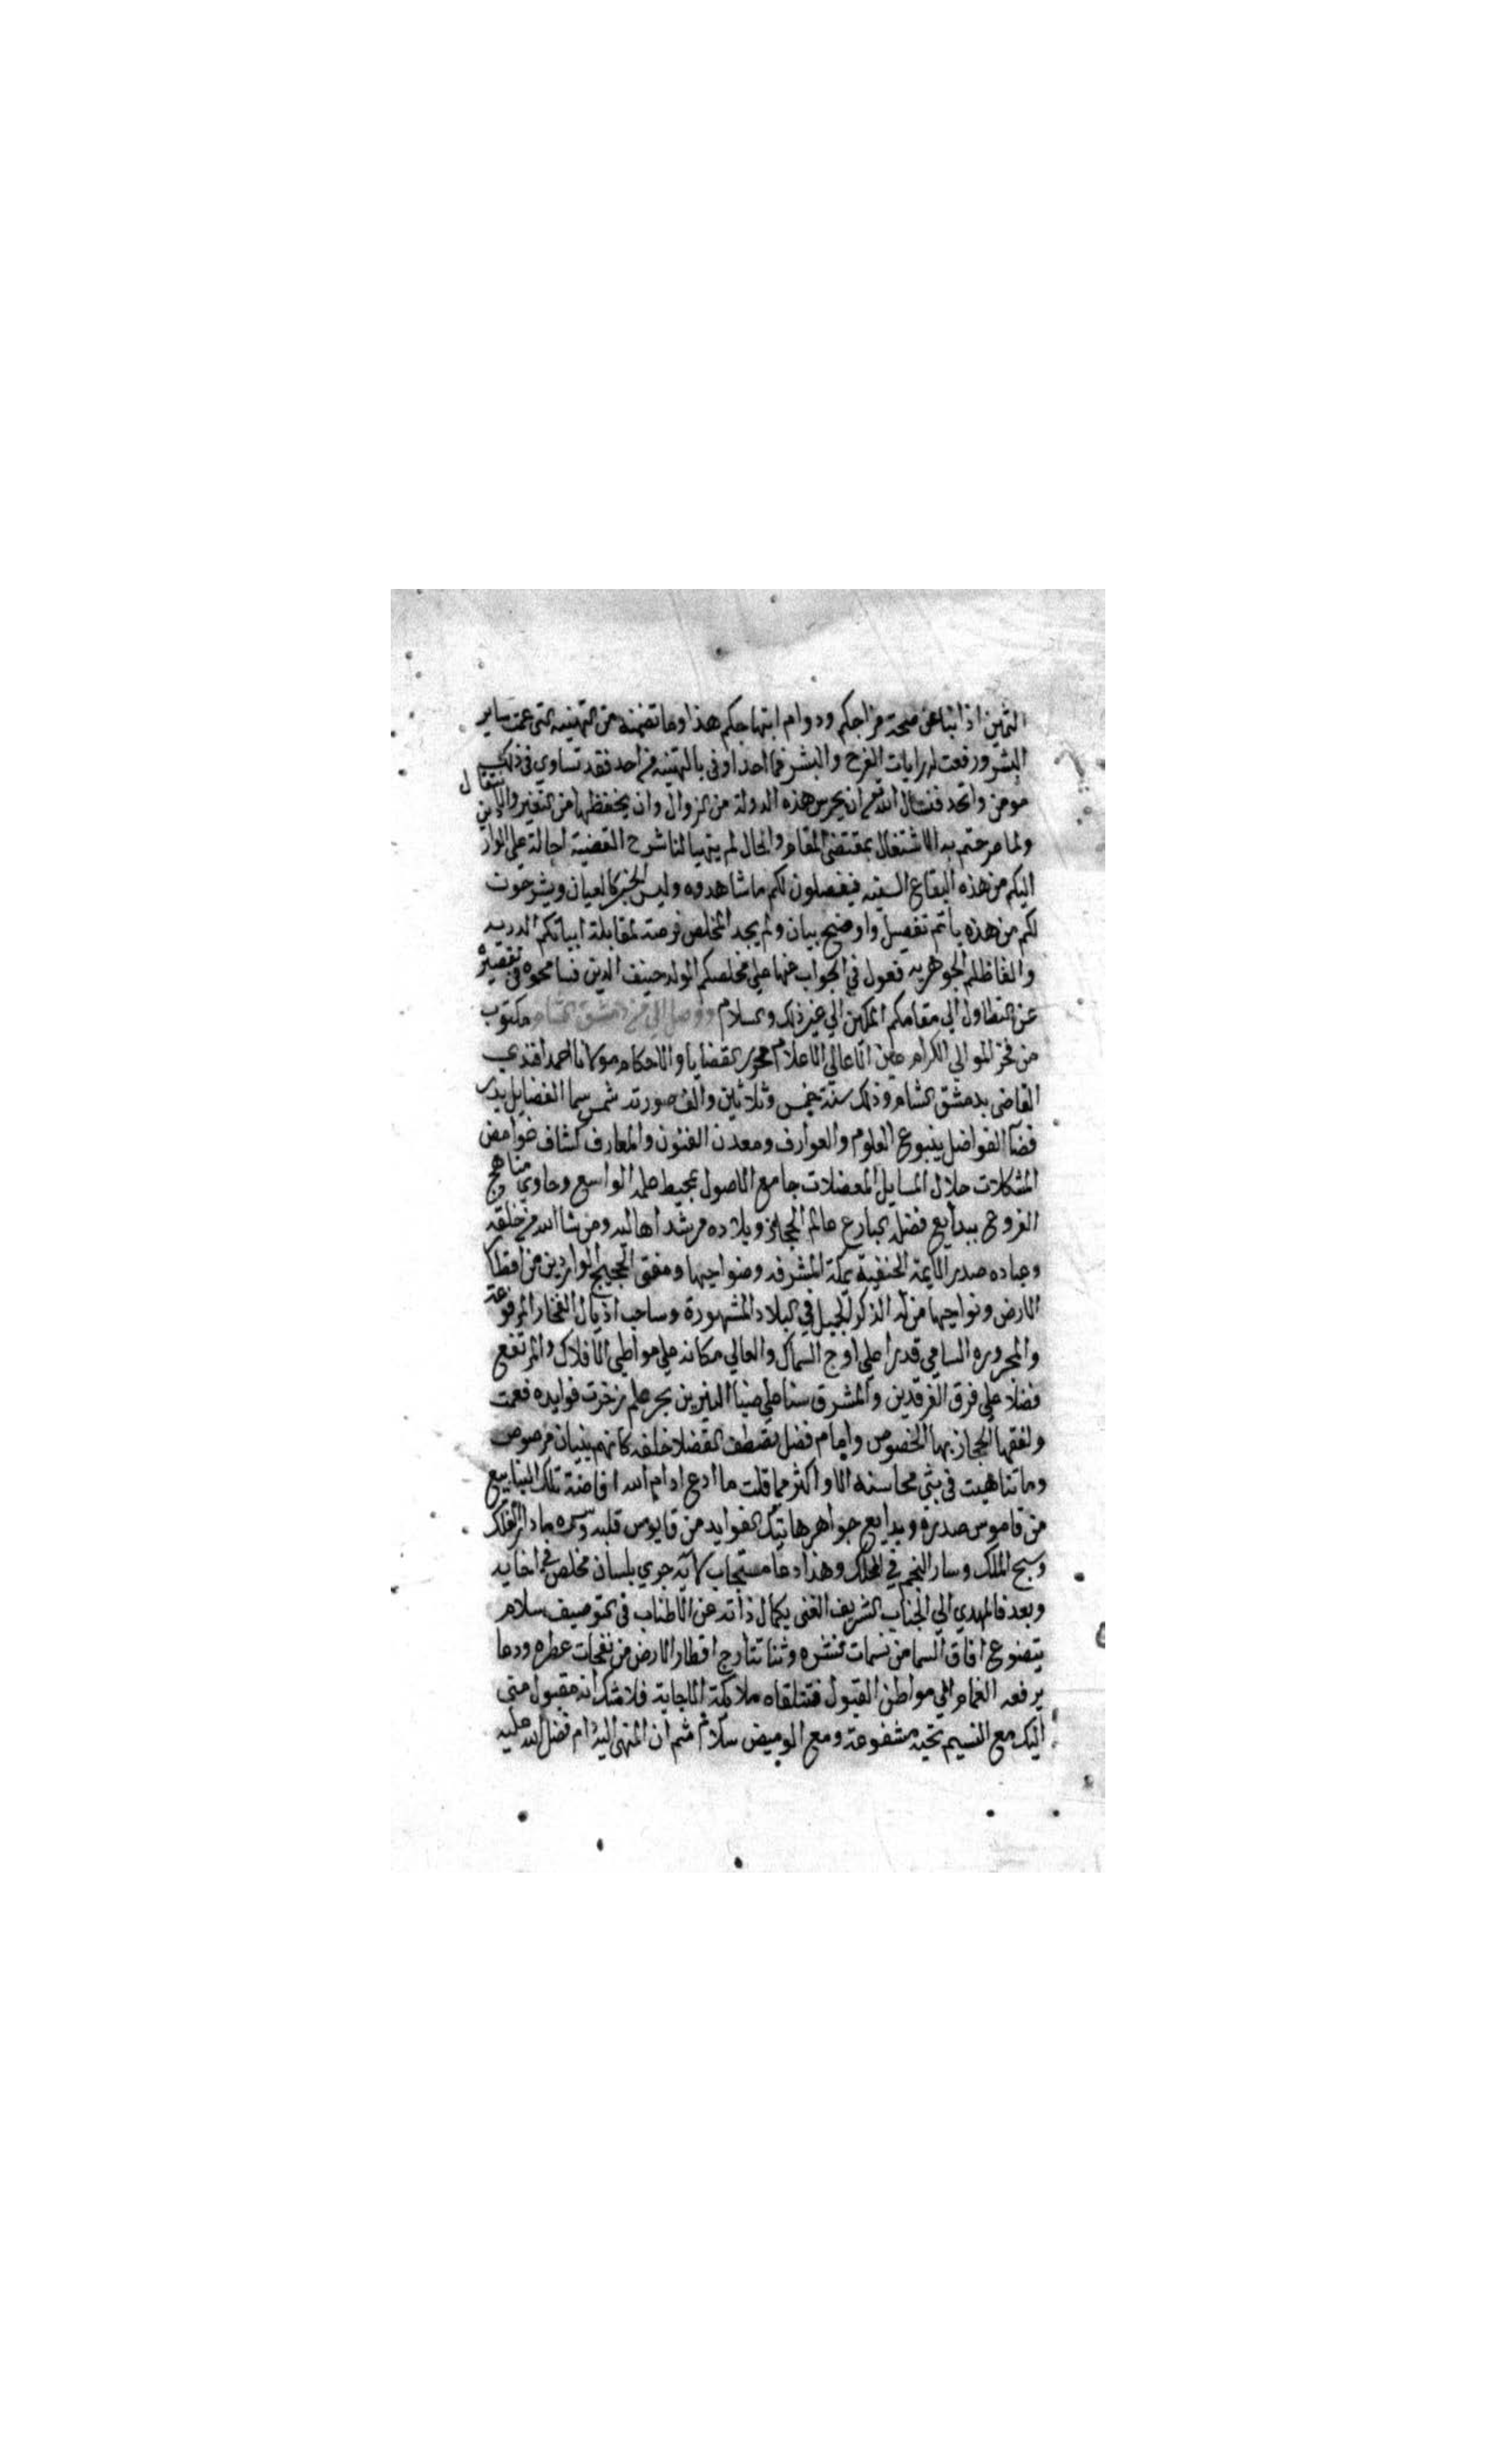 الثمين اذ انبا عن صحة مزاجكم ودوام ابتهاجكم هذا وما تضمنه من التهنيه التي عمت ساير
البشر ورفعت له رايات الفرح والبشر فما احد اوفى بالتهنيه من احد فقد تساوي في ذلك
مومن واتحد فنسال الله تع ان يحرس هذه الدولة من الزوال وان يحفظها من التغير والانتقال
ولما صرحتم به الاشتغال بمقتضى المقام والحال لم يتهيا لنا شرح القضية احالة على الواردين
اليكم من هذه البقاع السنيه فيفصلون لكم ما شاهدوه وليس الخبر كالعيان ويشرحون
لكم من هذه باتم تفصيل واوضح بيان ولم يجد المخلص فرصة لمقابلة ابياتكم الدريه
والفاظكم الجوهريه فعول في الجواب عنها علي مخلصكم الولد حنيف الدين فسامحوه في تقصيره
عن التطاول الي مقامكم المكين الي غير ذلك والسلام ووصل الي من دمشق الشام مكتوب
من فخر الموالي الكرام عين الاعالي الاعلام محرر القضايا والاحكام مولانا احمد افندي
القاضي بدمشق الشام وذلك سنة خمس وثلاثين والف صورته شمس سما الفضايل بدر
فضآ الفواضل ينبوع العلوم والعوارف ومعدن الفنون والمعارف كشاف غوامض
المشكلات حلال المسايل المعضلات جامع الاصول بمحيط علمه الواسع وحاوي مناهج
الفروع ببدايع فضله البارع عالم الحجاز وبلاده مرشد اهاليه ومن شا الله من خلقه
وعباده صدر الايمة الحنفية بمكة المشرفه وضواحيها ومفتي الحجيج الواردين من اقطار
الارض ونواحيها من له الذكر الجميل في البلاد المشهورة وساحب اذيال الفخار المرفوعة
والمجروره السامي قدرا علي اوج السماك والعالي مكانه علي مواطي الافلاك والمرتفع
فضلا علي فرق الفرقدين والمشرق سنا علي ضيا النيرين بحر علم زخرت فوايده فعمت
ولفقها الحجاز بها الخصوص وامام فضل تصطف الفضلا خلفه كانهم بنيان مرصوص
وما تناهيت في بثي محاسنه الا واكثر مما قلت ما ادع ادام الله افاضة تلك الينابيع
من قاموس صدره وبدايع جواهر هاتيك الفوايد من قابوس قلبه وسره ما دار الفلك
وسبح الملك وسار النجم في الحلك وهذا دعا مستجاب لانه جري بلسان مخلص في اخايه
وبعد فالمهدي الي الجناب الشريف الغني بكمال ذاته عن الاطناب في التوصيف سلام
يتضوع افاق السما من نسمات نشره وثنا تتارج اقطار الارض من نفحات عطره ودعا
يرفعه الغمام الي مواطن القبول فتتلقاه ملايكة الاجابة فلا شك انه مقبول متى
اليك مع النسيم تحية مشفوعة ومع الوميض سلام ثم ان المنهى اليه ادام فضل الله عليه